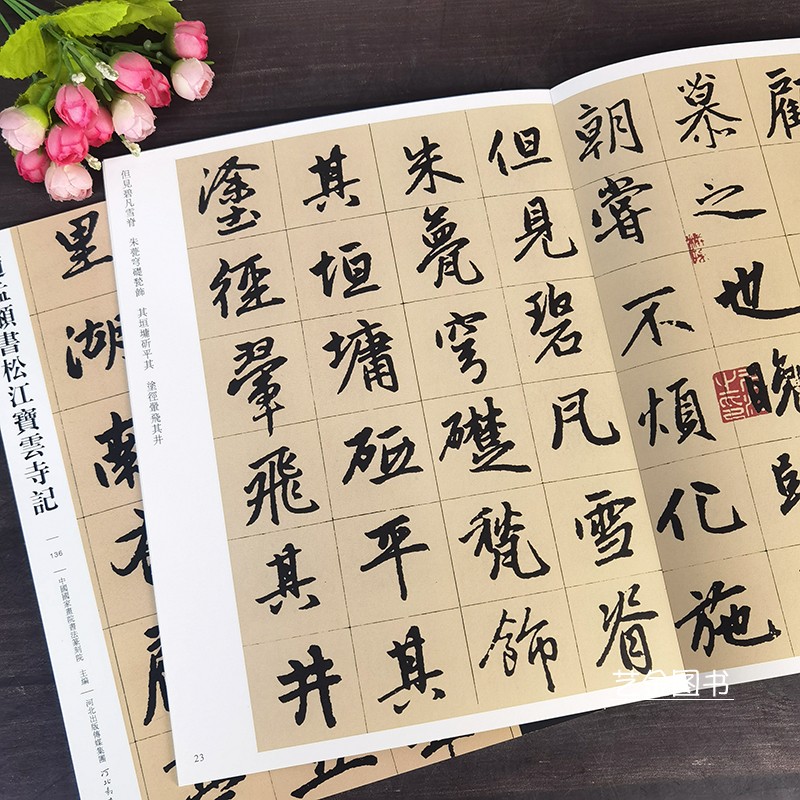 顧
慕之也晚
朝嘗不煩化施
但見碧凡雪脊
朱甍穹礎甃飾
其垣墉斫平其
塗徑翬飛其井
但見碧凡雪脊 朱甍穹礎甃飾 其垣墉斫平其 塗徑翬飛其井
23
里湖南
孟頫書松江寶雲寺記
136
中國國家畫院書法篆刻院 主編
河北出版傳媒集團
图书